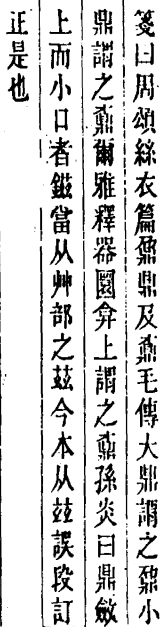 箋曰周頌絲衣篇鼐鼎及鼒毛傳大鼎謂之鼐小
鼎謂之鼒爾雅釋器圜弇上謂之鼒孫炎曰鼎斂
上而小口者鎡當从艸部之茲今本从玆誤段訂
正是也